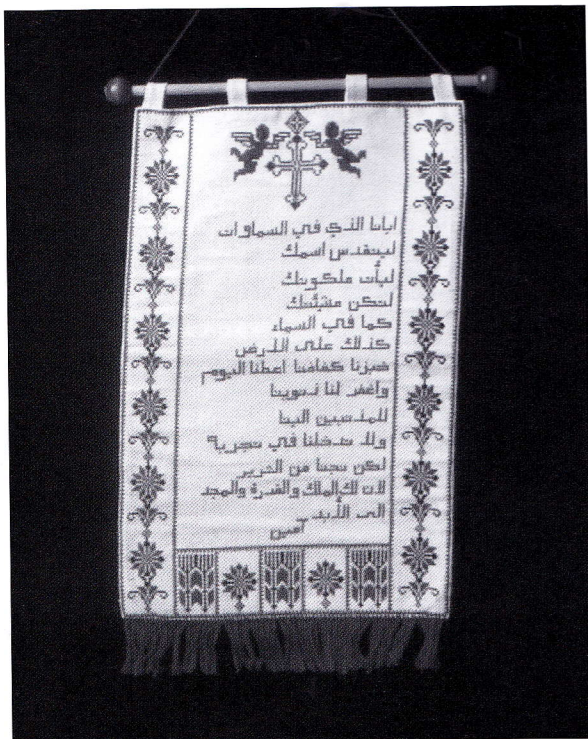 ابانا الذي في السماوات
ليتقدس اسمك
ليأت ملكوتك
لتكن مشيئتك
كما في السماء
كذلك على الارض
خبزنا كفافنا اعطنا اليوم
واغفر لنا ذنوبنا
للمذنبين الينا
ولا تدخلنا في تجربة
لكن نجنا من الشرير
لان لك الملك والقدرة والمجد
الى الأبد
آمين